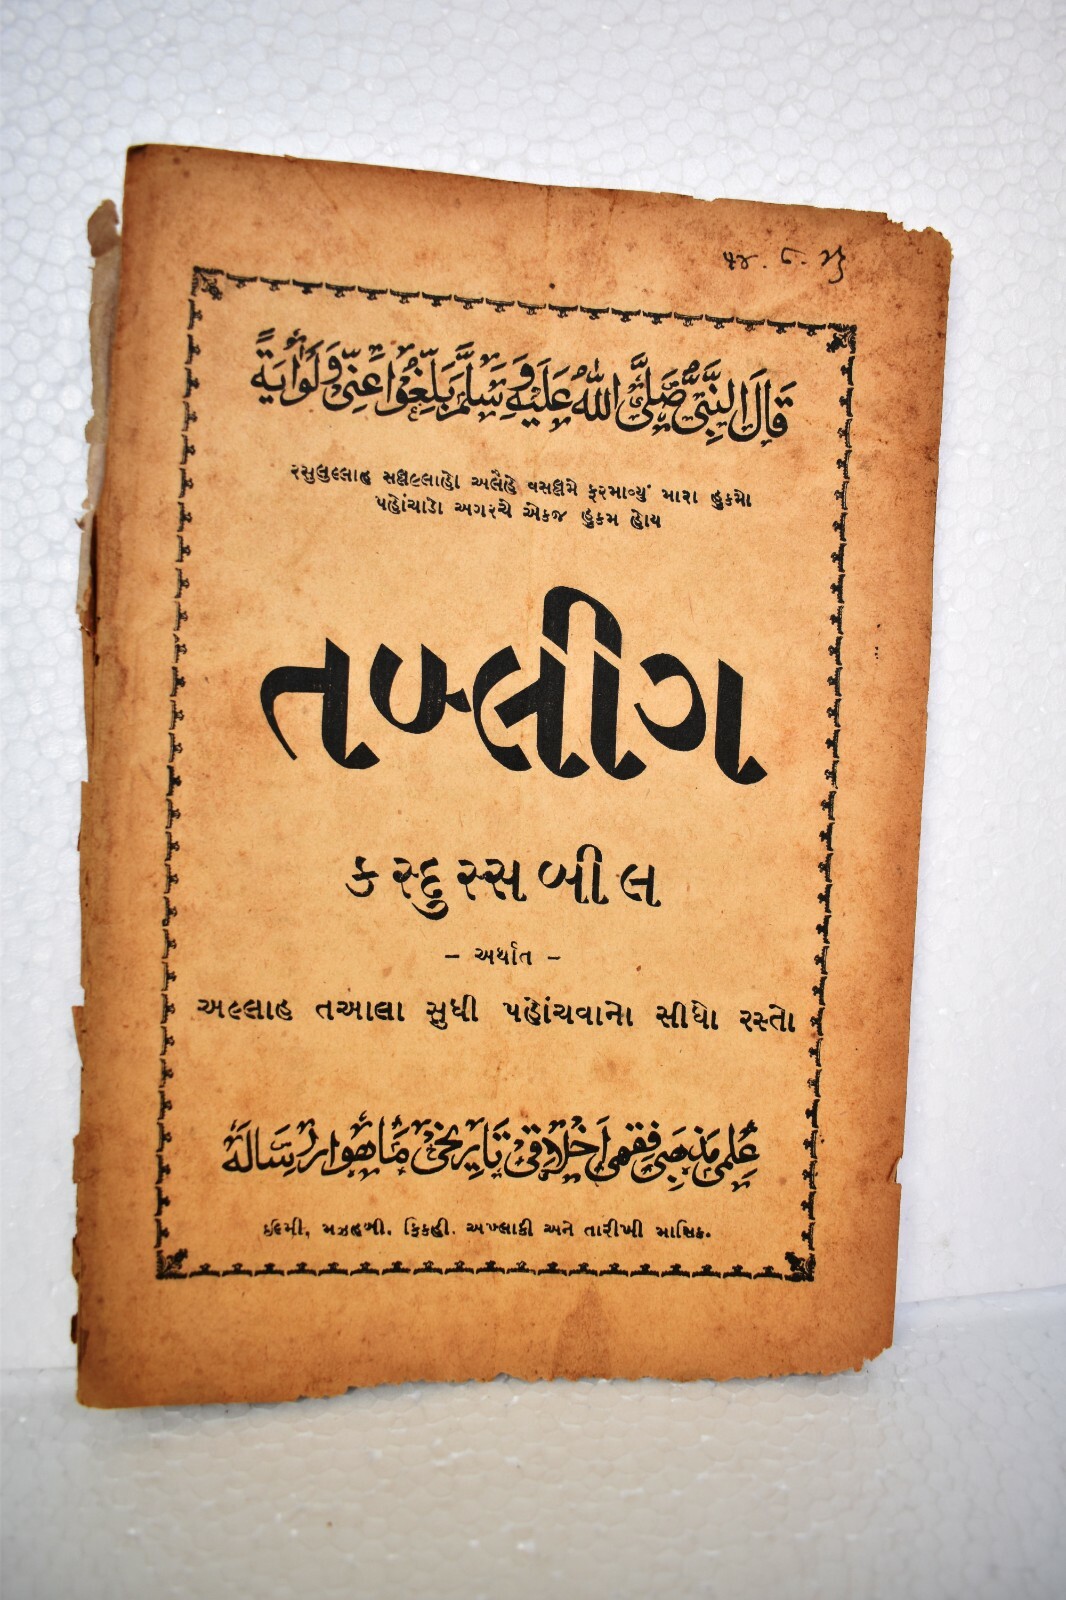 قَالَ النَّبِیُّ صَلَّی اللّٰهُ عَلَیْهِ وَسَلَّمَ بَلِّغُوْا عَنِّیْ وَلَوْ اٰیَةً
રસુલુલ્લાહ સલ્લલ્લાહો અલૈહે વસલ્લમે ફરમાવ્યું મારા હુકમો
પહોંચાડો અગરચે એકજ હુકમ હોય
તબ્લીગ
કસ્દુસ્સબીલ
– અર્થાત –
અલ્લાહ તઆલા સુધી પહોંચવાનો સીધો રસ્તો
عِلمی مَذهبی فِقهی اَخلاقی تَاریخی مَاهوار رِسَاله
ઈલ્મી, મઝહબી, ફિકહી, અખ્લાકી અને તારીખી માસિક.